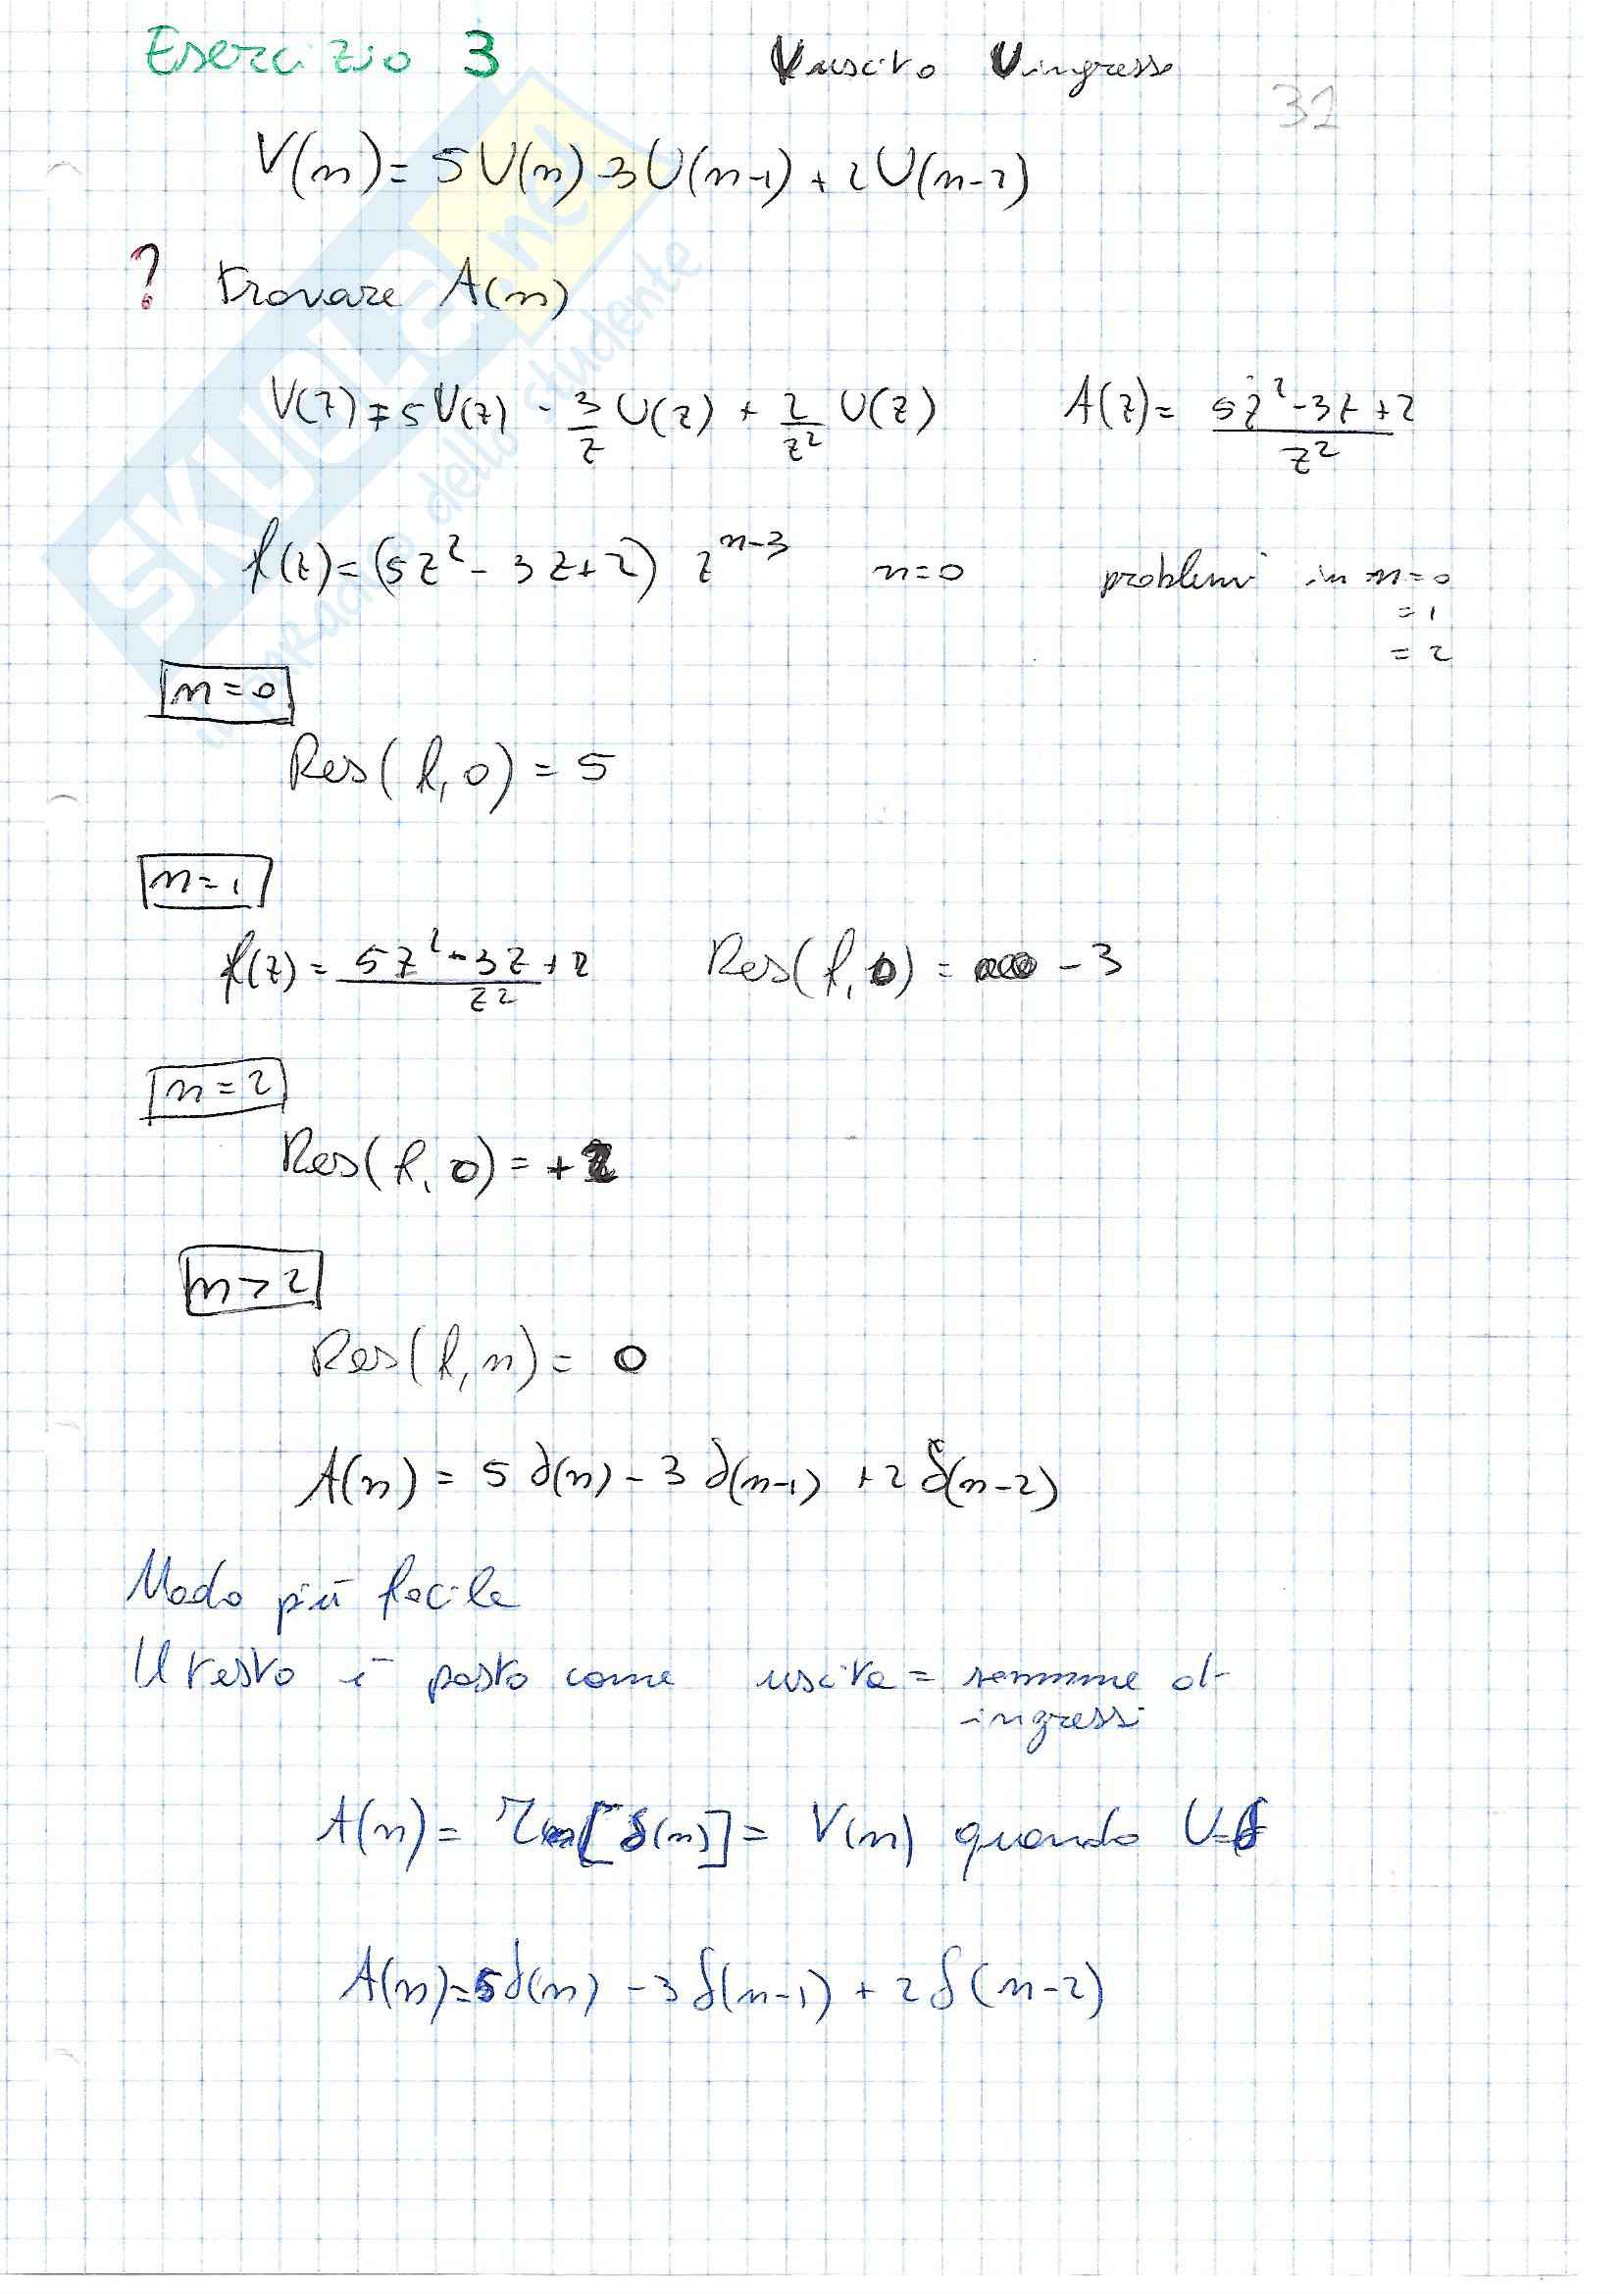 Esercizio 3 V uscita U ingresso
31
V(n) = 5U(n) -3U(n-1) + 2U(n-2)
? trovare A(n)
V(z) = 5U(z) - 3/z U(z) + 2/z² U(z) A(z) = (5z²-3z+2)/z²
f(z) = (5z² - 3z+2) z^(n-3) n=0 problemi in n=0
=1
=2
n=0
Res(f,0) = 5
n=1
f(z) = (5z²-3z+2)/z² Res(f,0) = -3
n=2
Res(f,0) = +2
n>2
Res(f,n) = 0
A(n) = 5δ(n) - 3δ(n-1) + 2δ(n-2)
Modo più facile
Il testo è posto come uscita = somme di
ingressi
A(n) = [δ(n)] = V(n) quando U=δ
A(n)=5δ(n) -3δ(n-1) + 2δ(n-2)
SKUOLA.net
il paradiso dello studente